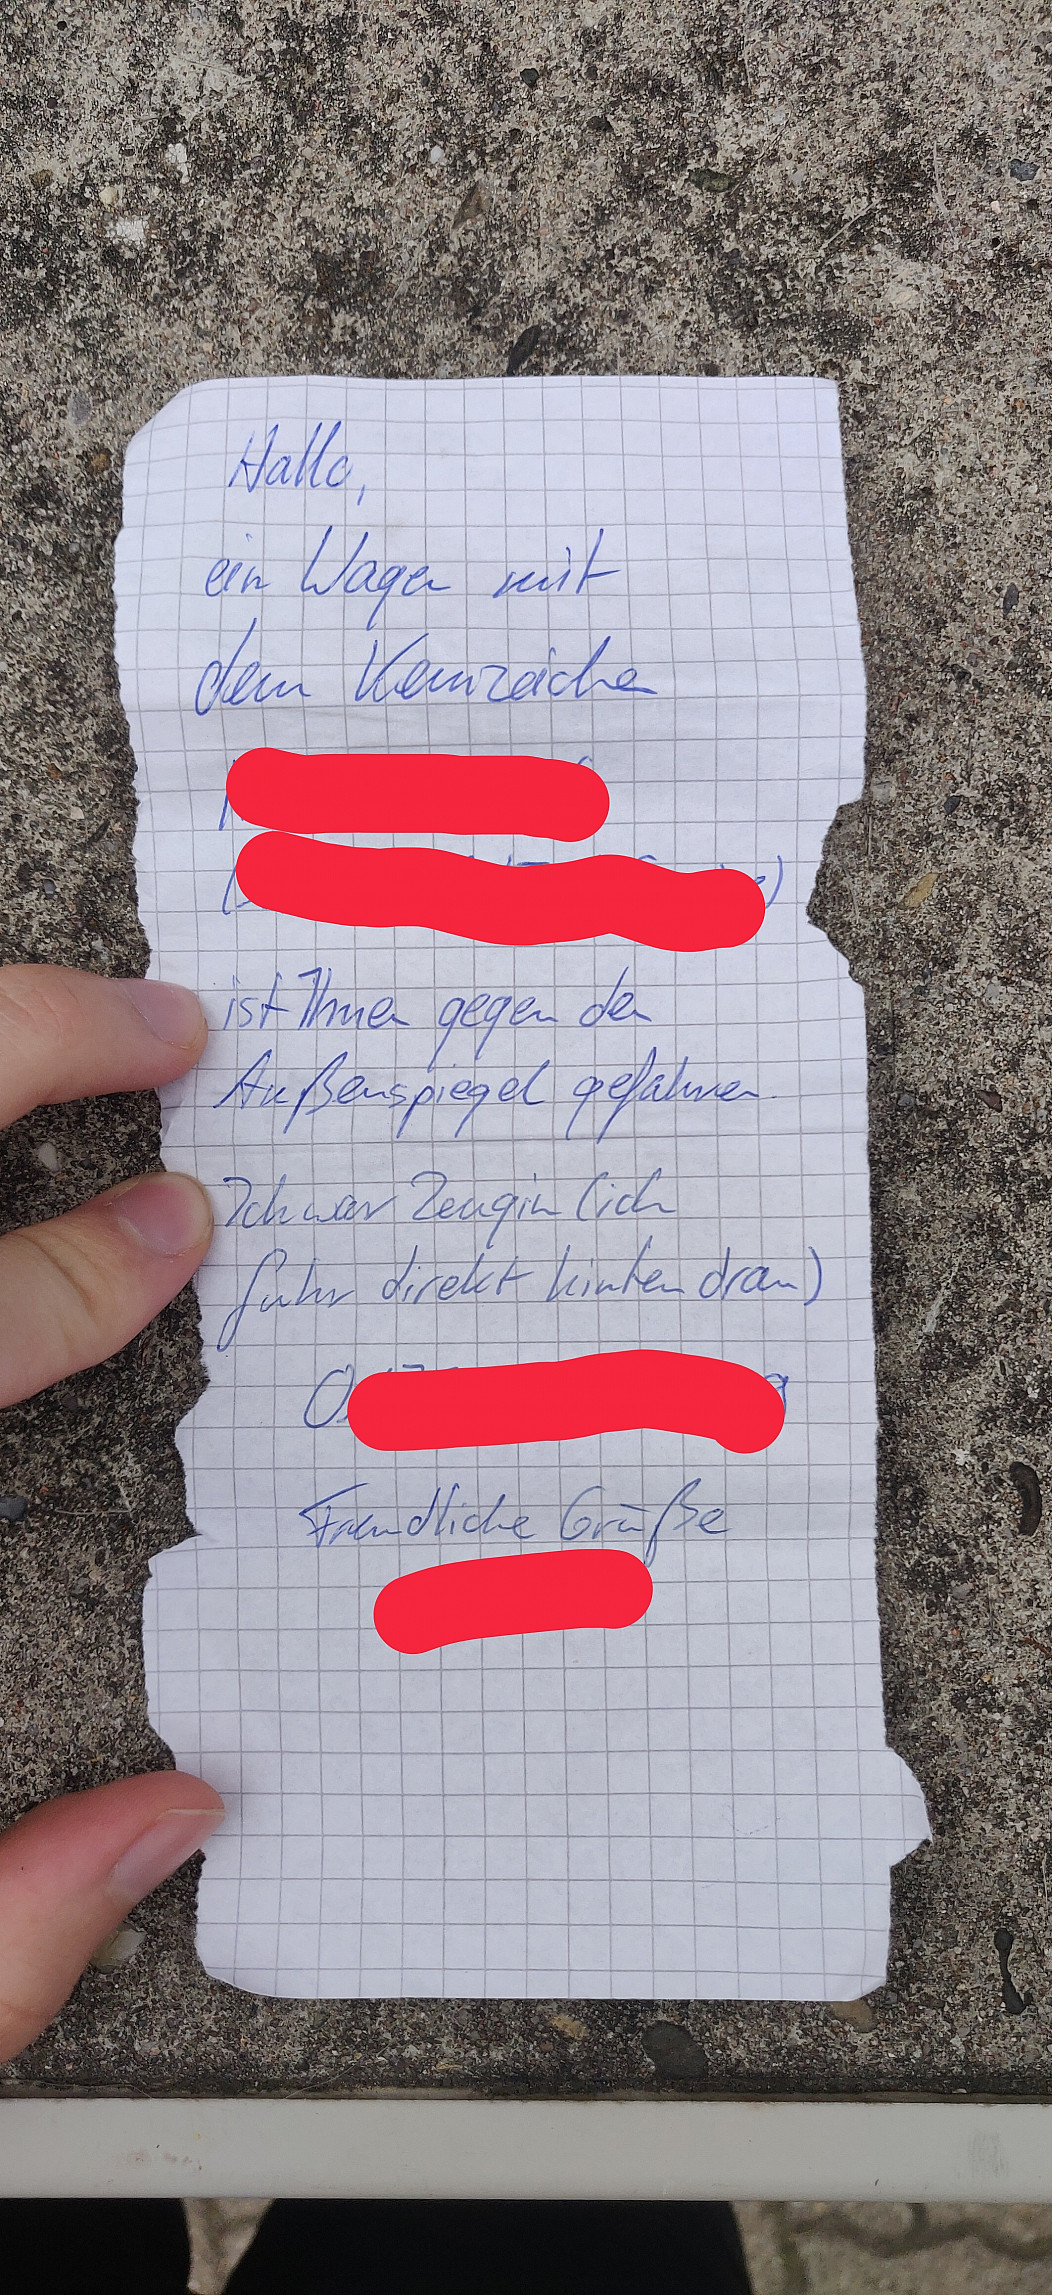 Hallo,
ein Wagen mit
dem Kennzeichen
ist Ihnen gegen den
Außenspiegel gefahren.
Ich war Zeugin (ich
fuhr direkt hinten dran)
Freundliche Grüße